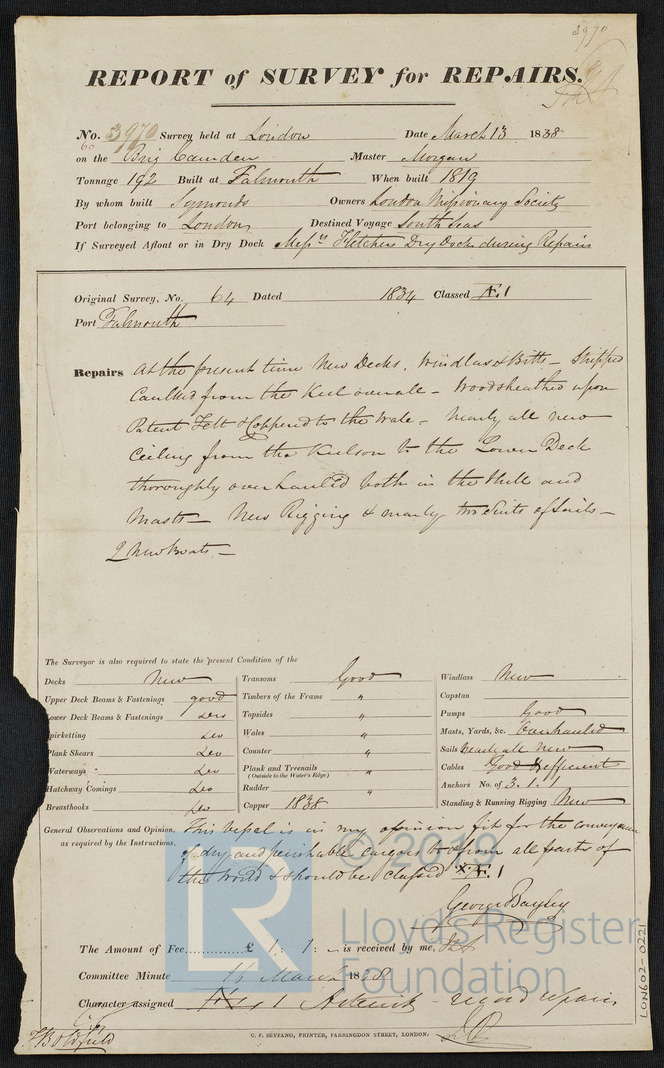 3970
REPORT of SURVEY for REPAIRS.
No. 3970 Survey held at London Date March 13 1838
60
on the Brig Camden Master Morgan
Tonnage 192 Built at Falmouth When built 1819
By whom built Symonds Owners London Missionary Society
Port belonging to London Destined Voyage South Seas
If Surveyed Afloat or in Dry Dock Messrs Fletchers Dry Dock during Repairs
Original Survey, No. 64 Dated 1834 Classed Æ.1
Port Falmouth
Repairs At the present time New Decks, Windlass & Bitts – Stripped
Caulked from the Keel overall – Woodsheathed upon
Patent Felt & Coppered to the Wale – Nearly all new
Ceiling from the Keelson to the Lower Deck
thoroughly overhauled both in the Hull and
Masts – New Rigging & nearly two Suits of Sails –
2 New Boats. –
The Surveyor is also required to state the present Condition of the
Decks New
Upper Deck Beams & Fastenings good
Lower Deck Beams & Fastenings Do
Spirketting Do
Plank Shears Do
Waterways Do
Hatchway Comings Do
Breasthooks Do
Transoms Good
Timbers of the Frame "
Topsides "
Wales "
Counter "
Plank and Treenails "
(Outside to the Water's Edge)
Rudder "
Copper 1838
Windlass New
Capstan
Pumps Good
Masts, Yards, &c. Overhauled
Sails Nearly all New
Cables Good & efficient
Anchors No. of 3. 1. 1
Standing & Running Rigging New
General Observations and Opinion, This vessel is in my opinion fit for the conveyance
as required by the Instructions, of dry and perishable cargoes to & from all parts of
the World & should be classed *Æ.1
George Bayley
The Amount of Fee............... £ 1: 1: – is received by me,
Committee Minute 16 March 1838
Character assigned Æ 1 Asterisk – record repairs
C. F. SEYFANG, PRINTER, FARRINGDON STREET, LONDON.
LON602-0221
© 2019
LR
Lloyd's Register
Foundation